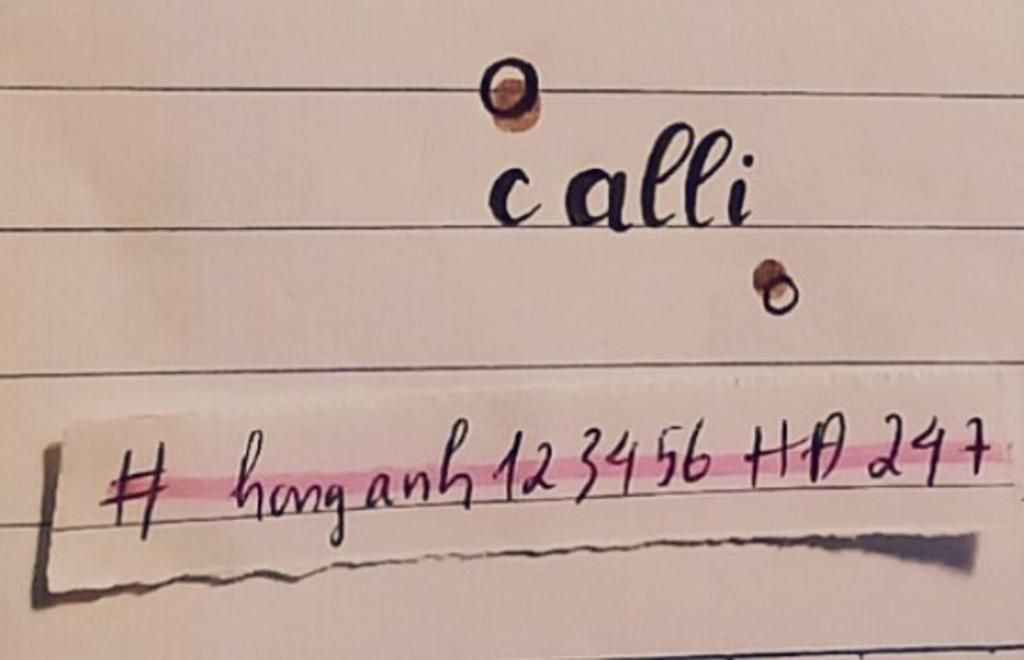 calli
# honganh123456 HA 247